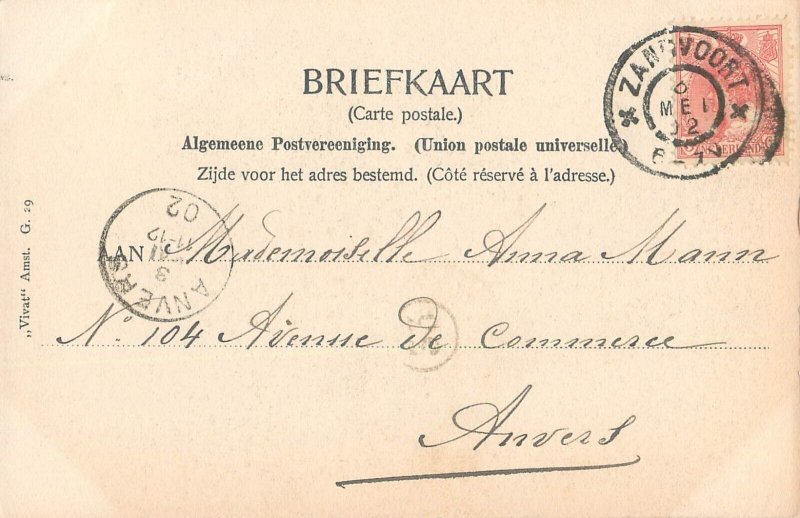 BRIEFKAART
(Carte postale.)
Algemeene Postvereeniging. (Union postale universelle
Zijde voor het adres bestemd. (Côté réservé à l'adresse.)
ZANDVOORT
MEI
02
6-7
ANVERS
3
11-12
02
AAN Mademoiselle Anna Mann
No 104 Avenue de Commerce
Anvers
„Vivat" Amst. G. 29